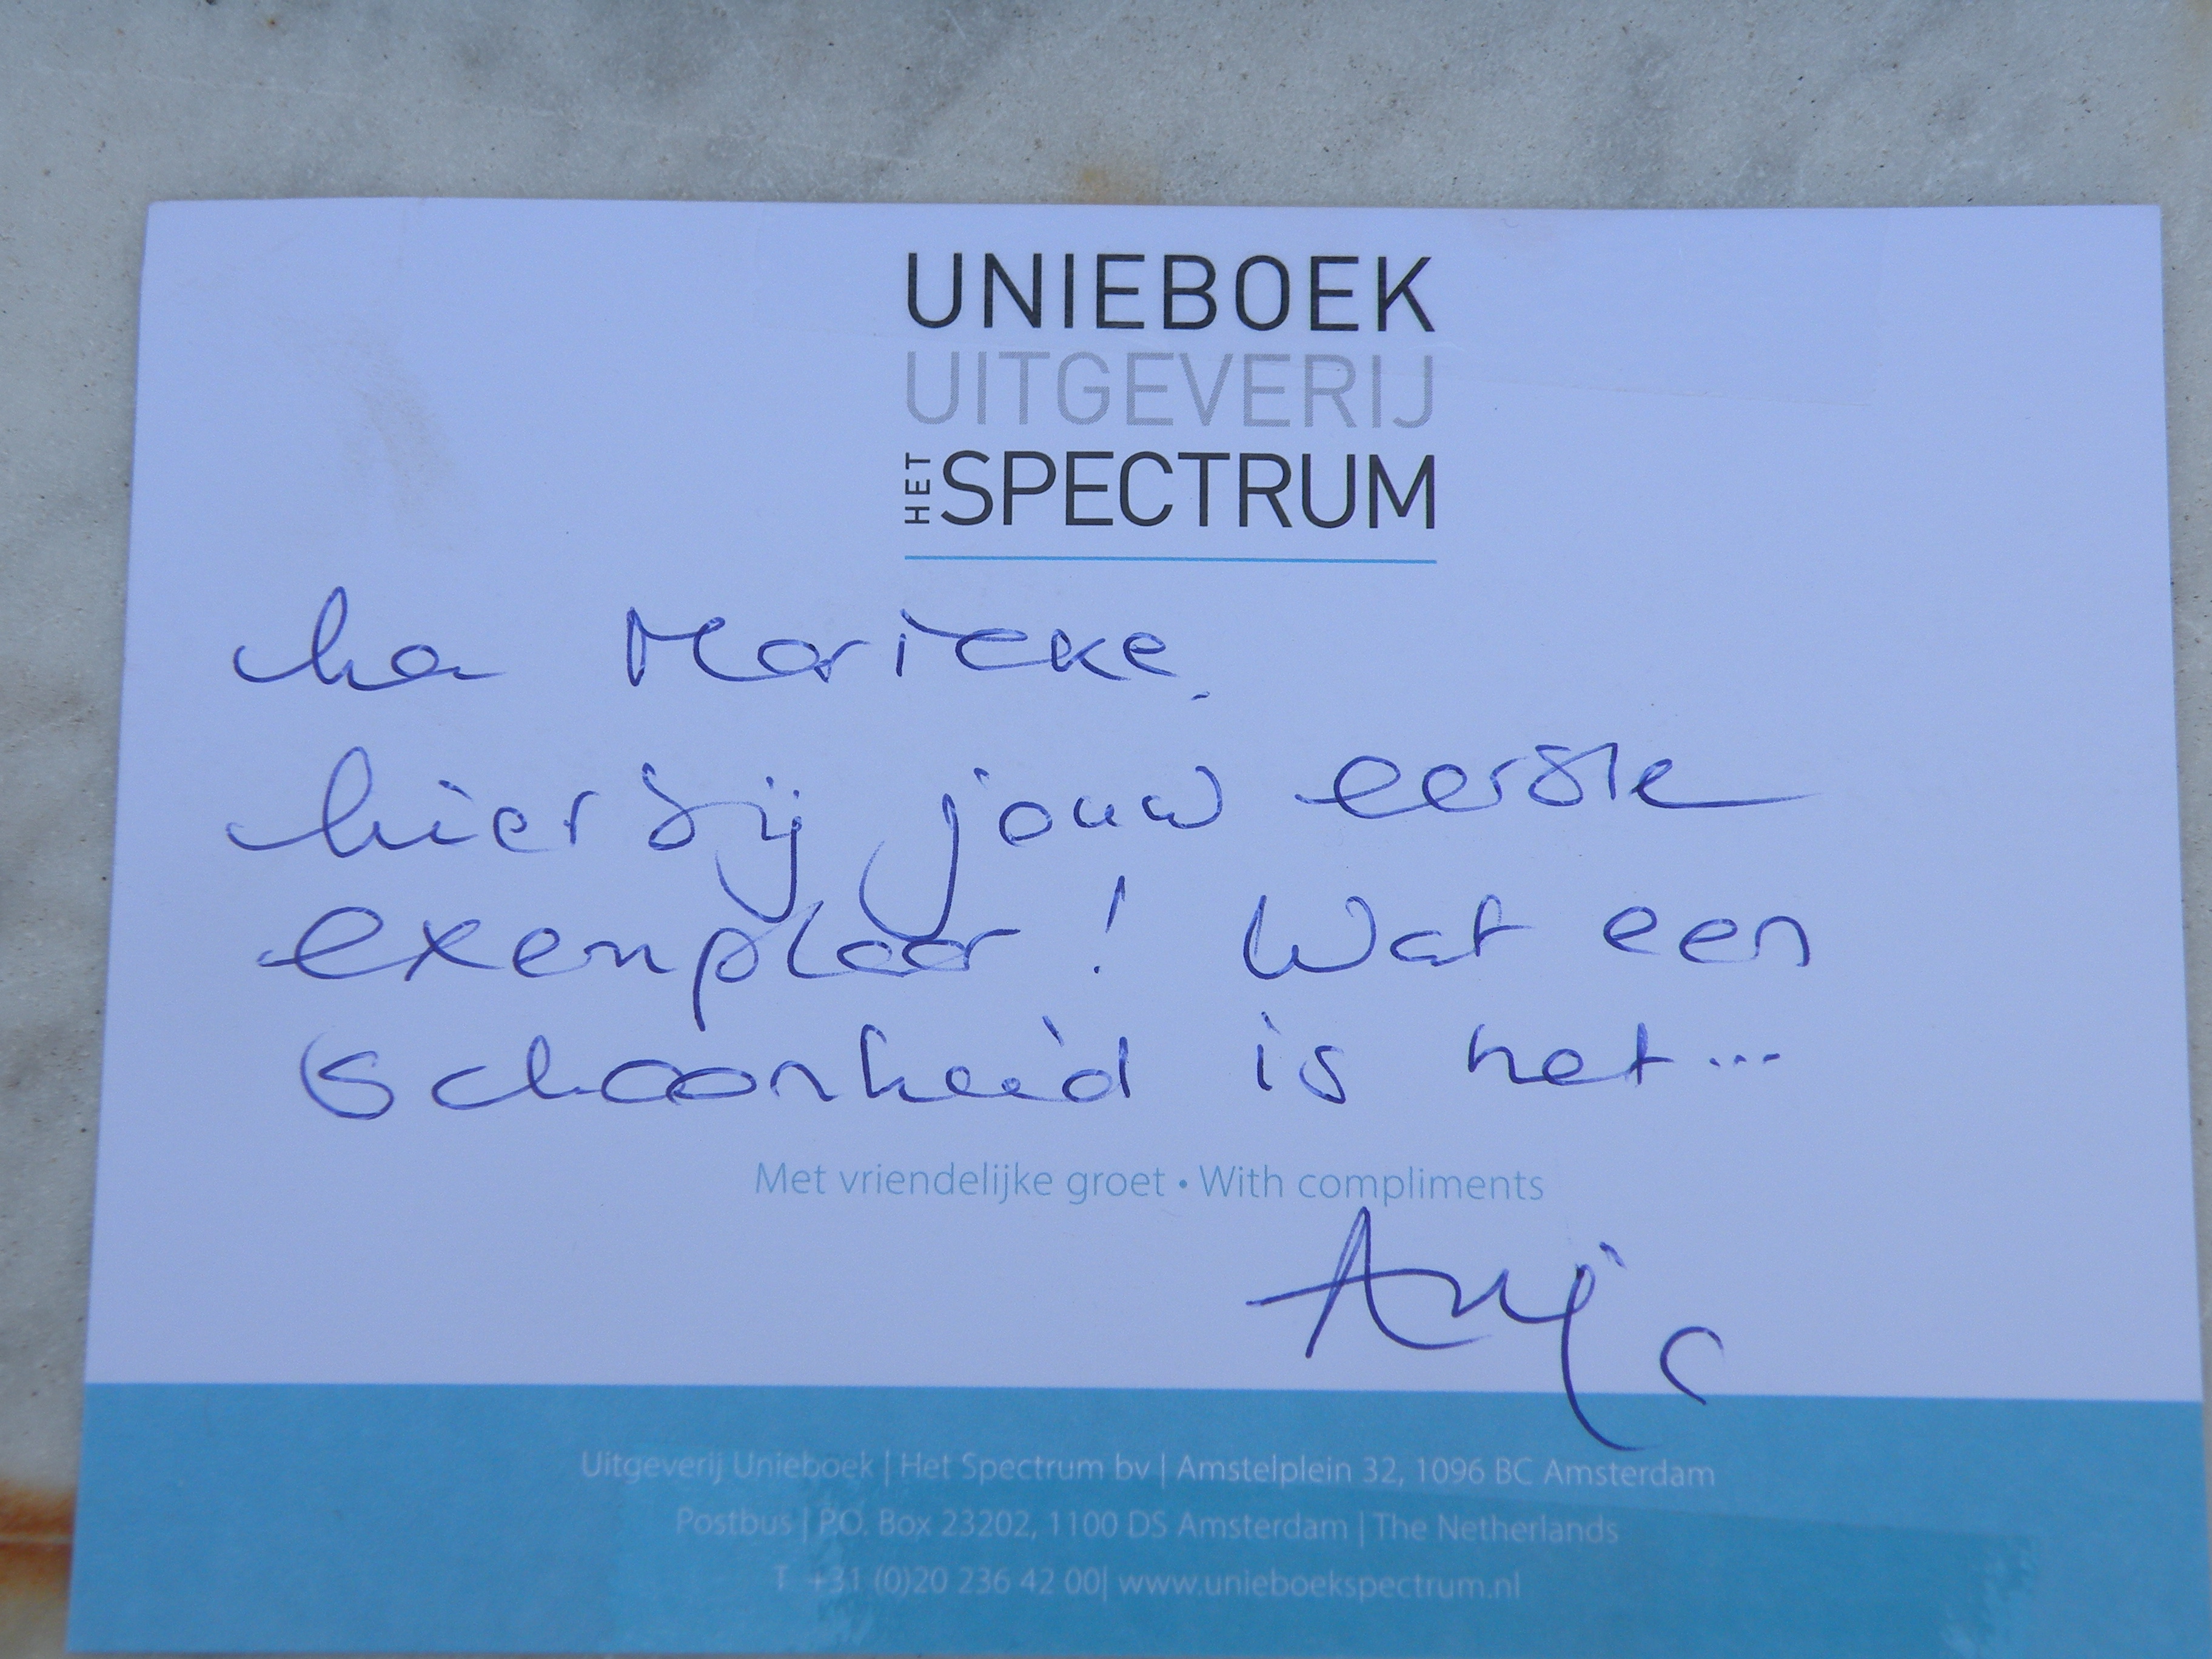 UNIEBOEK
UITGEVERIJ
HET SPECTRUM
ha Marieke,
hierbij jouw eerste
exemplaar! Wat een
schoonheid is het...
Met vriendelijke groet • With compliments
Anja
Uitgeverij Unieboek | Het Spectrum bv | Amstelplein 32, 1096 BC Amsterdam
Postbus | P.O. Box 23202, 1100 DS Amsterdam | The Netherlands
T +31 (0)20 236 42 00| www.unieboekspectrum.nl